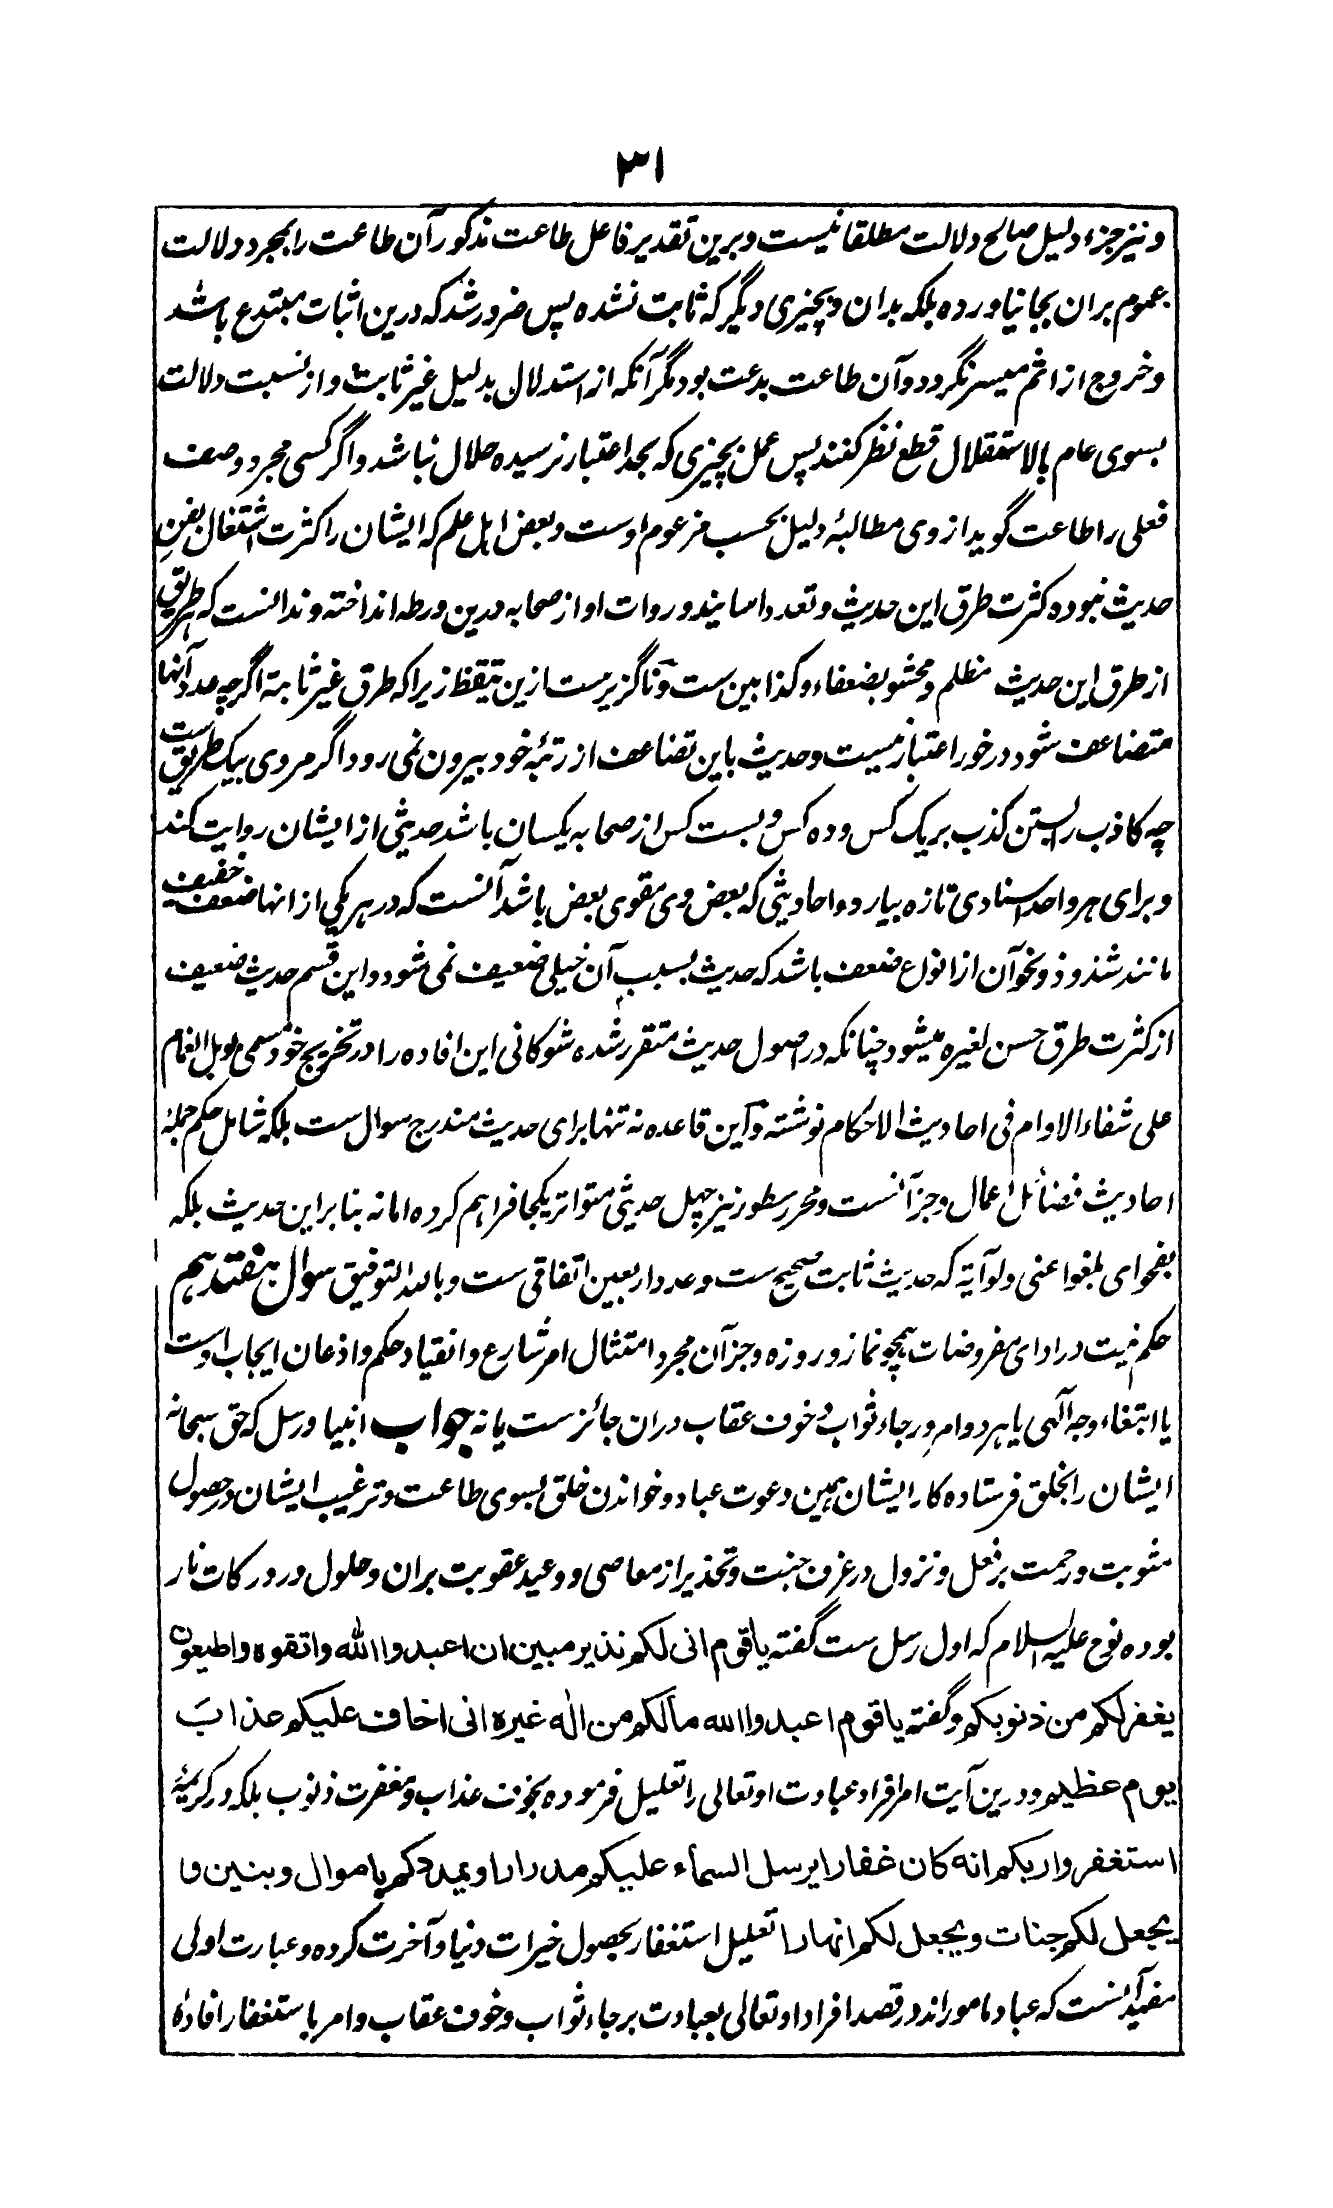 ۳۱
ونیز جزء دلیل صالح دلالت مطلقا نیست و برین تقدیر فاعل طاعت مذکور آن طاعت را بمجرد دلالت
عموم بران بجا نیاورده بلکه بدان و بچیزی دیگر که ثابت نشده پس ضرور شد که درین اثبات مبتدع باشد
و خروج از اثم میسر نگردد و آن طاعت بدعت بود مگر آنکه از استدلال بدلیل غیر ثابت و از نسبت دلالت
بسوی عام بالاستقلال قطع نظر کنند پس عمل بچیزی که بحد اعتبار نرسیده حلال نباشد و اگر کسی مجرد وصف
فعلی را طاعت گوید از وی مطالبهٔ دلیل بحسب مزعوم اوست و بعض اہل علم که ایشان را کثرت اشتغال بفن
حدیث نبوده کثرت طرق این حدیث و تعدد اسانید و روات او از صحابه درین ورطه انداخته و ندانست که هر طریق
از طرق این حدیث مظلم و محشو بضعفاء و کذابین ست و ناگزیرست ازین تیقظ زیرا که طرق غیر ثابتة اگرچه عدد آنها
متضاعف شود درخور اعتبار نیست و حدیث باین تضاعف از رتبهٔ خود بیرون نمی رود اگر مروی بیک طریق ست
چه کاذب را بستن کذب بر یک کس و ده کس و بست کس از صحابه یکسان باشد حدیثی از ایشان روایت کند
و برای هر واحد اسنادی تازه بیارد و احادیثی که بعض وی مقوی بعض باشد آنست که در هر یکی از انها ضعف خفیف
مانند شذوذ و نحو آن از انواع ضعف باشد که حدیث بسبب آن خیلی ضعیف نمی شود و این قسم حدیث ضعیف
از کثرت طرق حسن لغیره میشود چنانکه در اصول حدیث متقرر شده شوکانی این افاده را در تخریج خود مسمی بوبل الغمام
علی شفاء الاوام فی احادیث الاحکام نوشته و آین قاعده نه تنها برای حدیث مندرج سوال ست بلکه شامل حکم جملهٔ
احادیث فضائل اعمال و جز آنست و محرر سطور نیز چهل حدیثی متواتر یکجا فراهم کرده اما نه بنا بر این حدیث بلکه
بفحوای بلغوا عنی ولو آیة که حدیث ثابت صحیح ست و عدد اربعین اتفاقی ست و بالله التوفیق سوال هفتدهم
حکم نیت در ادای مفروضات همچو نماز و روزه و جز آن مجرد امتثال امر شارع و انقیاد حکم و اذعان ایجاب اوست
یا ابتغاء وجه آلهی یا هر دو امر و رجاء ثواب و خوف عقاب دران جائزست یا نه جواب انبیا و رسل که حق سبحانه
ایشان را بخلق فرستاده کار ایشان همین دعوت عباد و خواندن خلق بسوی طاعت و ترغیب ایشان در حصول
مثوبت و رحمت بر فعل و نزول در غرف جنت و تحذیر از معاصی و وعید عقوبت بران و حلول در درکات نار
بوده نوح علیه السلام که اول رسل ست گفته یا قوم انی لکم نذیر مبین ان اعبدوا الله واتقوه واطیعون
یغفر لکم من ذنوبکم و گفته یا قوم اعبدوا الله مالکم من اله غیره انی اخاف علیکم عذاب
یوم عظیم و درین آیت امر افراد عبادت او تعالی را تعلیل فرموده بخوف عذاب و مغفرت ذنوب بلکه در کریمهٔ
استغفروا ربکم انه کان غفارا یرسل السماء علیکم مدرارا ویمددکم باموال وبنین و
یجعل لکم جنات ویجعل لکم انهارا تعلیل استغفار بحصول خیرات دنیا و آخرت کرده و عبارت اولی
مفید آنست که عباد مامور اند در قصد افراد او تعالی بعبادت برجاء ثواب و خوف عقاب و امر باستغفار افادهٔ